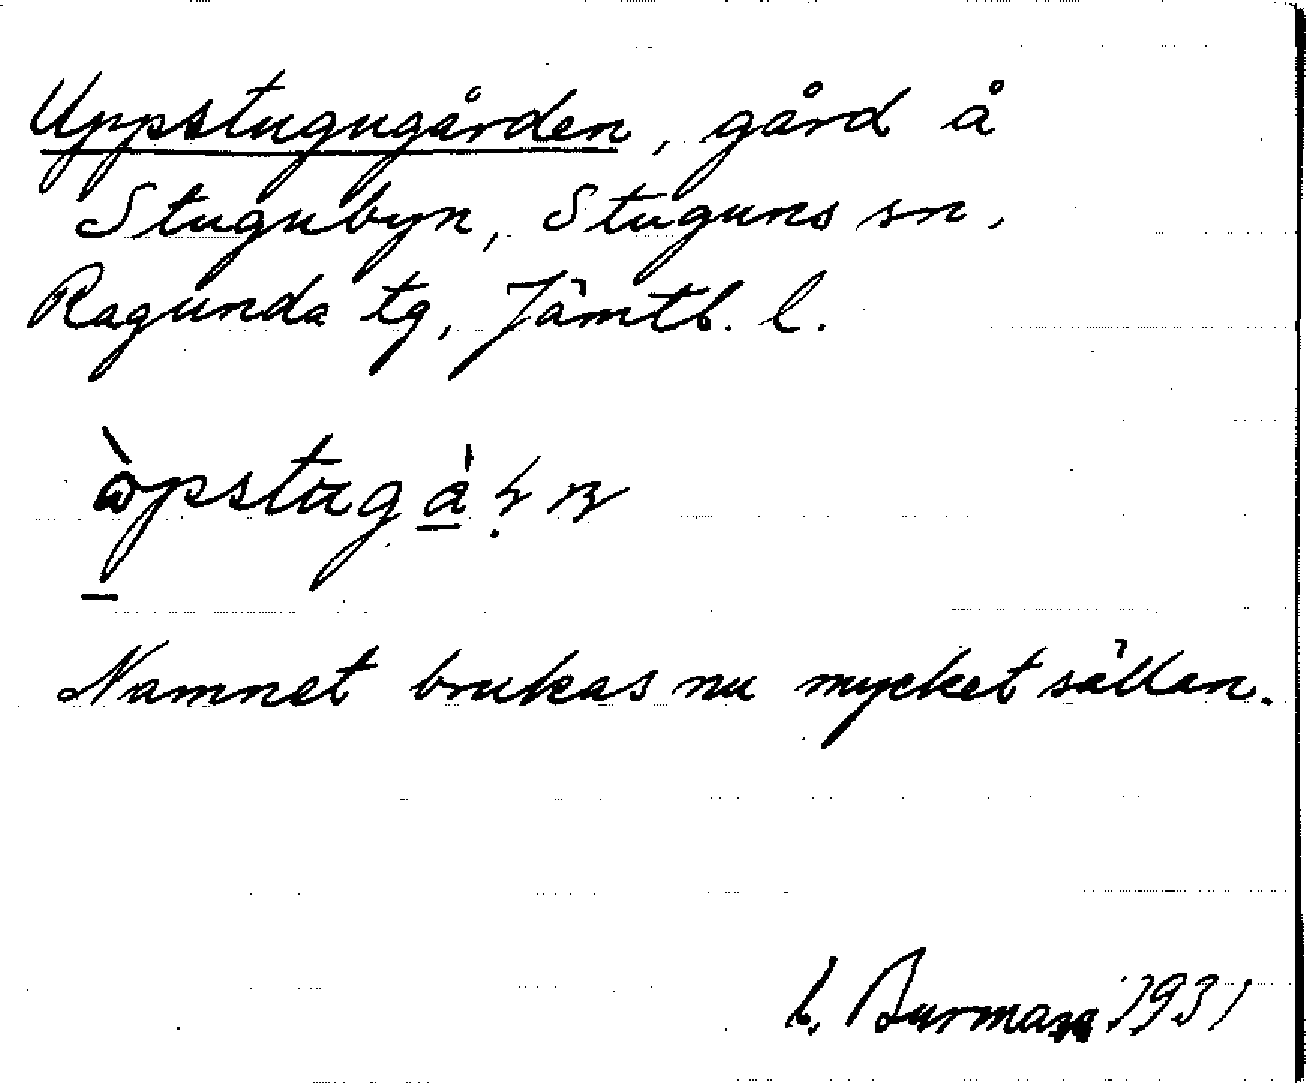 Uppstugugården, gård å
Stugubyn, Stuguns sn,
Ragunda tg, Jämtl. l.
Namnet brukas nu mycket sällan.
L. Burman 1931